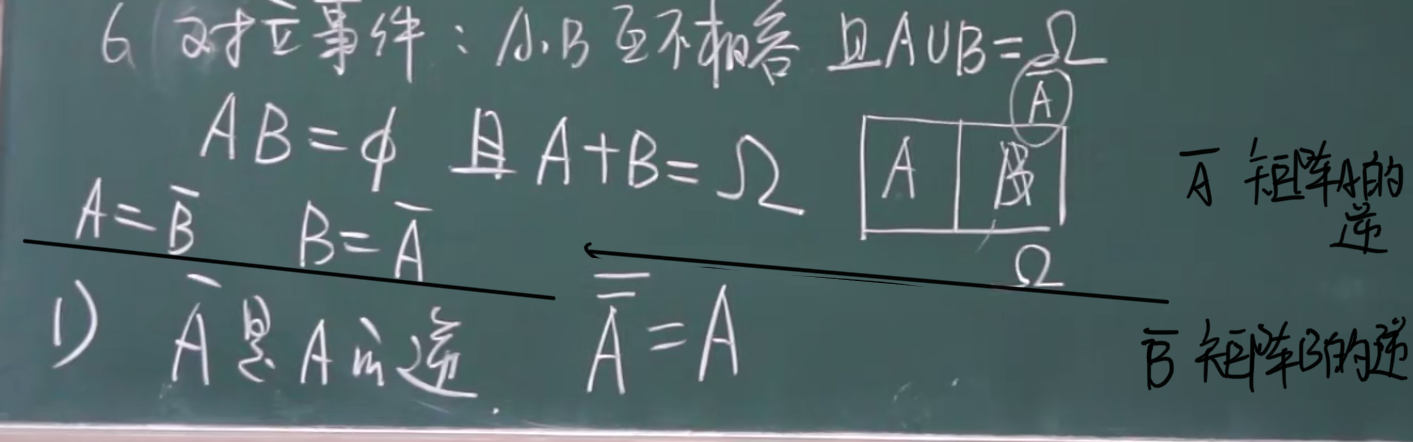 6 对立事件：A.B 互不相容 且A∪B=Ω
AB=ϕ 且 A+B=Ω
A̅
A B
Ω
A=B̅ B=A̅
1) A̅是A的逆 A̿=A
A̅ 矩阵A的
逆
B̅ 矩阵B的逆